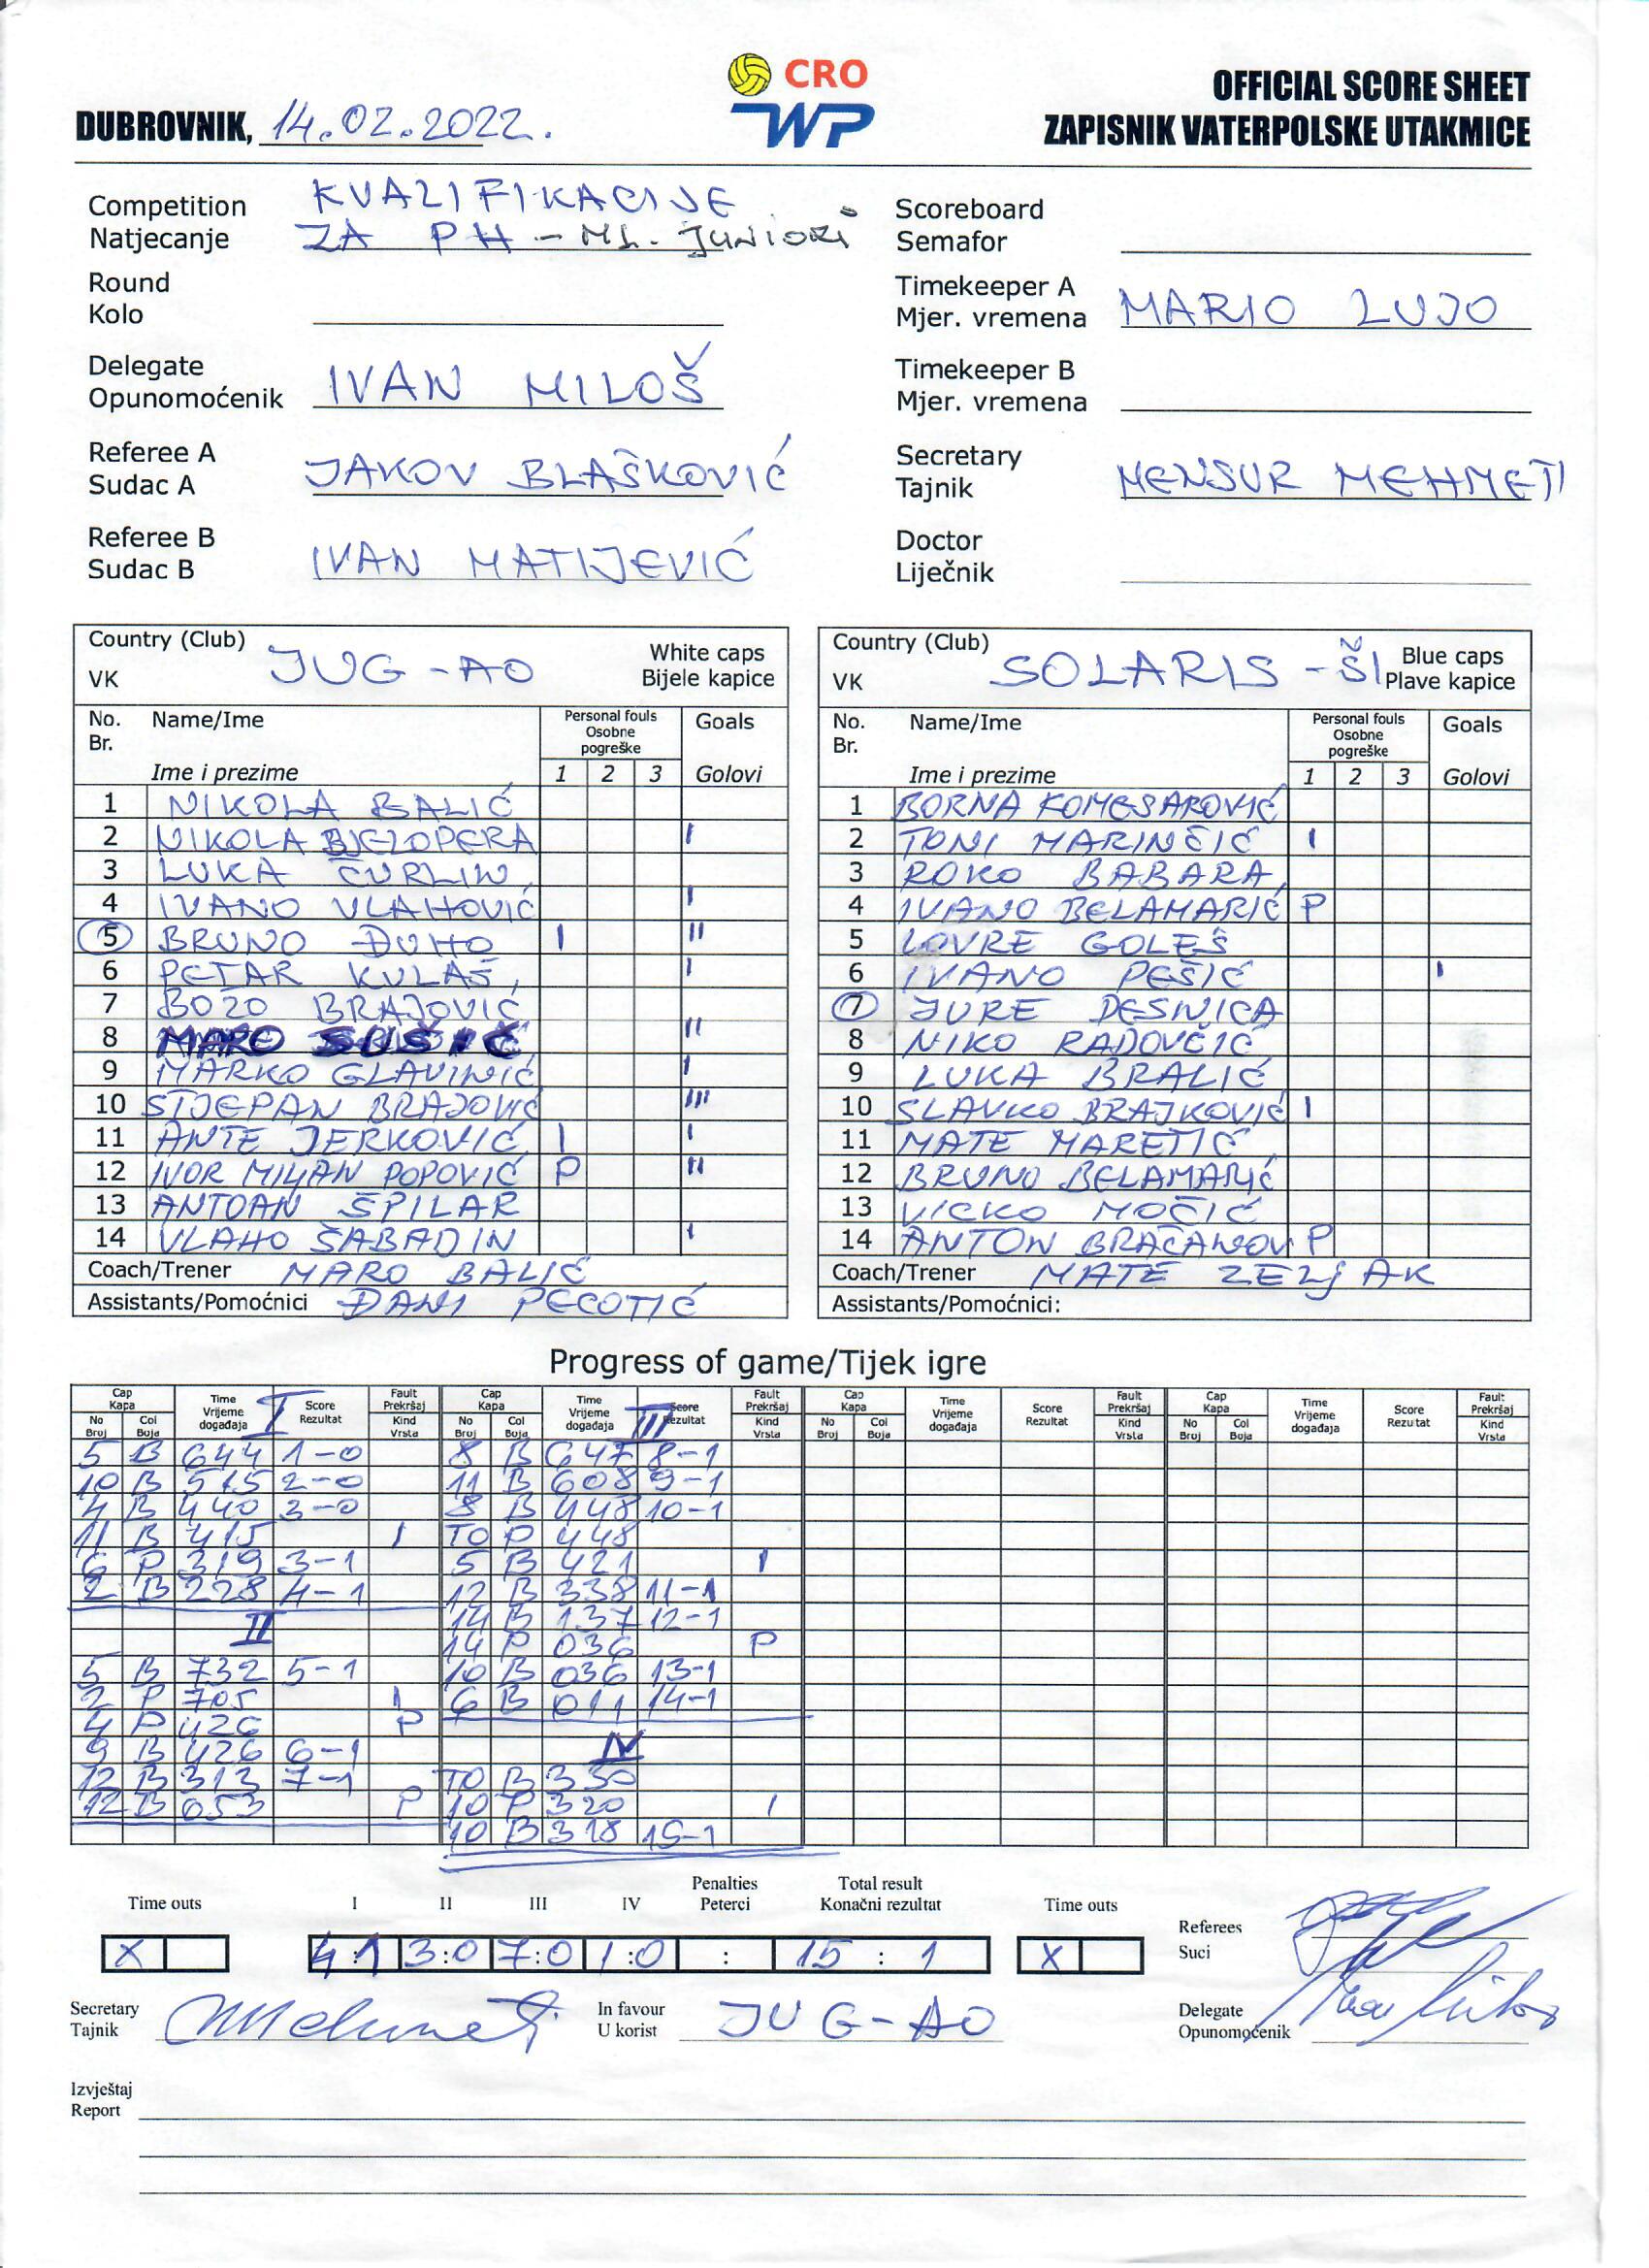 CRO
WP
OFFICIAL SCORE SHEET
DUBROVNIK, 14.02.2022.
ZAPISNIK VATERPOLSKE UTAKMICE
Competition KVALIFIKACIJE
Natjecanje ZA PH - ML. JUNIORI
Scoreboard
Semafor
Round
Kolo
Timekeeper A
Mjer. vremena MARIO LUJO
Delegate
Opunomoćenik IVAN MILOŠ
Timekeeper B
Mjer. vremena
Referee A
Sudac A JAKOV BLAŠKOVIĆ
Secretary
Tajnik MENSUR MEHMETI
Referee B
Sudac B IVAN MATIJEVIĆ
Doctor
Liječnik
Country (Club)
VK JUG-AO
White caps
Bijele kapice
No. Name/Ime Personal fouls Goals
Br. Osobne
pogreške
Ime i prezime 1 2 3 Golovi
1 NIKOLA BALIĆ
2 NIKOLA BJELOPERA I
3 LUKA ČURLIN
4 IVANO VLAHOVIĆ I
5 BRUNO ĐUHO I II
6 PETAR KULAŠ I
7 BOZO BRAJOVIĆ
8 MARO SUŠIĆ II
9 MARKO GLAVINIĆ I
10 STJEPAN BRAJOVIĆ III
11 ANTE JERKOVIĆ I I
12 IVOR MILJAN POPOVIĆ P II
13 ANTOAN ŠPILAR
14 VLAHO ŠABADIN I
Coach/Trener MARO BALIĆ
Assistants/Pomoćnici ĐANI PECOTIĆ
Country (Club)
VK SOLARIS - ŠI
Blue caps
Plave kapice
No. Name/Ime Personal fouls Goals
Br. Osobne
pogreške
Ime i prezime 1 2 3 Golovi
1 BORNA KOMESAROVIĆ
2 TONI MARINČIĆ I
3 ROKO BABARA
4 IVANO BELAMARIĆ P
5 LOVRE GOLEŠ
6 IVANO PEŠIĆ I
7 JURE DESNICA
8 NIKO RADOVČIĆ
9 LUKA BRALIĆ
10 SLAVKO BRAJKOVIĆ I
11 MATE MARETIĆ
12 BRUNO BELAMARIĆ
13 VICKO MOČIĆ
14 ANTON BRAČANOV P
Coach/Trener MATE ZELJAK
Assistants/Pomoćnici:
Progress of game/Tijek igre
Cap Kapa Time Vrijeme događaja Score Rezultat Fault Prekršaj
No Broj Col Boja Kind Vrsta
I
5 B 644 1-0
10 B 515 2-0
4 B 440 3-0
11 B 415 I
6 P 319 3-1
2 B 228 4-1
II
5 B 732 5-1
2 P 705 I
4 P 426 P
9 B 426 6-1
12 B 313 7-1
12 B 053 P
Cap Kapa Time Vrijeme događaja Score Rezultat Fault Prekršaj
No Broj Col Boja Kind Vrsta
III
8 B 647 8-1
11 B 608 9-1
8 B 448 10-1
TO P 448
5 B 421 I
12 B 338 11-1
14 B 137 12-1
14 P 036 P
10 B 036 13-1
6 B 011 14-1
IV
TO B 330
10 P 320 I
10 B 318 15-1
Cap Kapa Time Vrijeme događaja Score Rezultat Fault Prekršaj
No Broj Col Boja Kind Vrsta
Cap Kapa Time Vrijeme događaja Score Rezultat Fault Prekršaj
No Broj Col Boja Kind Vrsta
Time outs I II III IV Penalties Peterci Total result Konačni rezultat Time outs
X 4:1 3:0 7:0 1:0 : 15 : 1 X
Referees
Suci
Secretary
Tajnik
In favour
U korist JUG-AO
Delegate
Opunomoćenik
Izvještaj
Report